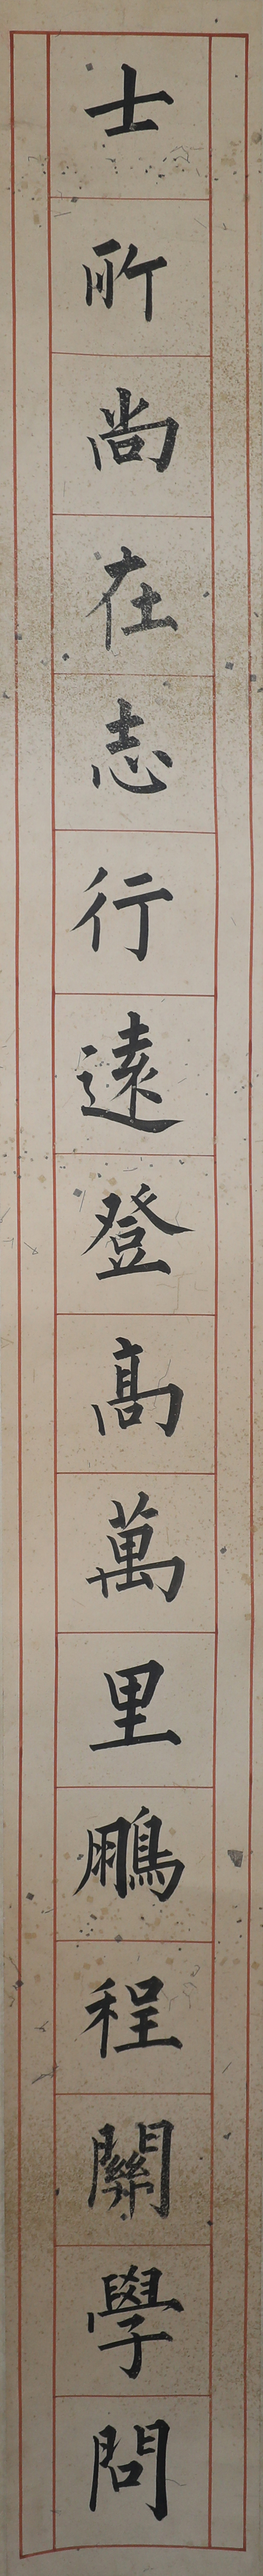 士所尚在志行遠登高萬里鵬程關學問